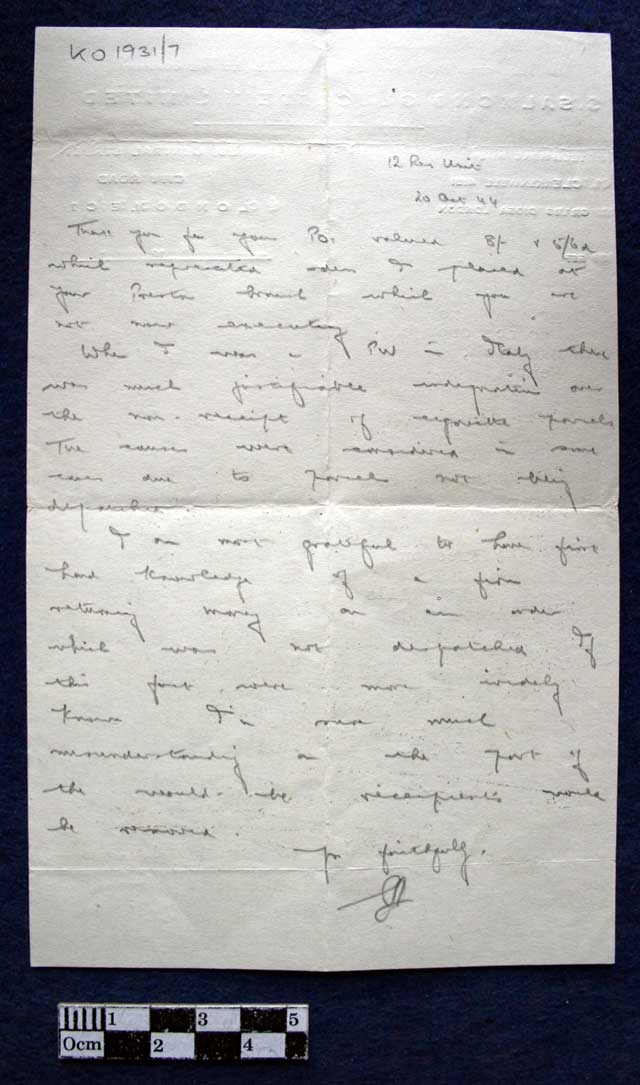 KO 1931/7
12 Res Unit
20 Oct 44
Thank you for your P.O. valued 8/- & 5/6d
which represented orders I placed at
your Preston branch which you are
not now executing
When I was a PW in Italy there
was much justifiable indignation over
the non-receipt of cigarette parcels
The causes were considered in some
cases due to parcels not being
despatched.
I am most grateful to have first
hand knowledge of a firm
returning money on an order
which was not despatched If
this fact were more widely
known I'm sure much
misunderstanding on the part of
the would-be receipients would
be removed.
Yrs faithfully.
0cm 1 2 3 4 5